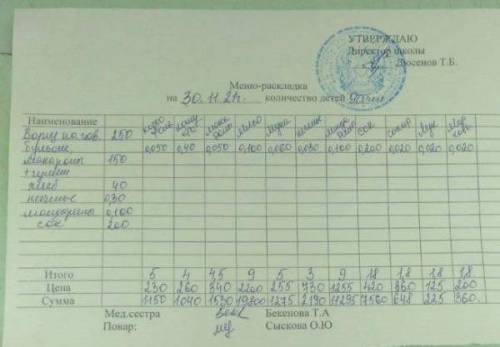 УТВЕРЖДАЮ
Директор школы
Дюсенов Т.Б.
Меню-раскладка
на 30.11.21г. количество детей 90
Наименование
250
бульоне, 0,050 0,40 0,050 0,100 0,030 0,100 0,200 0,020 0,020 0,020
макароны 150
хлеб 40
печенье 0,30
мандарины 0,100
сок 200
Итого 5 4 4,5 9 5 3 9 18 1,8 1,8 1,8
Цена 230 260 340 2200 255 730 1255 420 360 125 200
Сумма 1150 1040 1530 19800 1275 2190 11295 7560 648 225 360
Мед.сестра Бекенова Т.А
Повар: Сыскова О.Ю